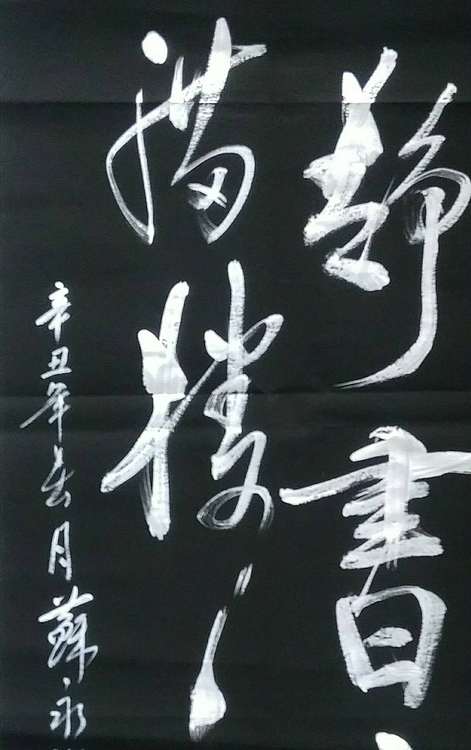 静書
满楼
辛丑年春月蘇永